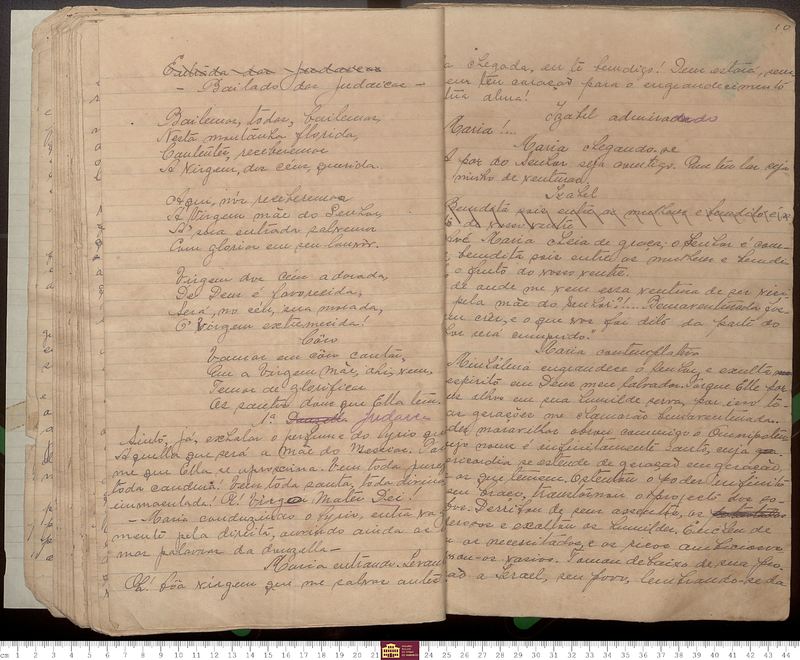 Entrada das Judaicas
- Bailado das Judaicas -
Bailemos, todas, bailemos,
Nesta montanha florida,
Contentes, receberemos
A Virgem, dos céus, querida.
Aqui, nós receberemos
A Virgem mãe do Senhor,
Á sua entrada salvemos
Com gloria em seu louvor.
Virgem dos céus adorada,
De Deus é favorecida,
Será, no céu, sua morada,
O' Virgem estremecida!
Côro
Vamos em côro cantar,
Que a Virgem Mãe, ahi, vem,
Temos de glorificar
Os santos dons que Ella tem.
1ª Donzella Judaica
Sinto, já, exhalar o perfume do lyrio que
aquella que será a Mãe do Messias.
me que Ella se aproxima. Vem toda pura,
toda candura! Vem toda santa, toda divina
immaculada! O! Virgo Mater Dei!
- Maria conduzindo o lyrio, entra
mente pela direita, ouvindo ainda as
mas palavras da donzella -
Maria entrando.
Oh! bôa virgem que me salvas
10
a chegada, eu te bemdigo! Deus estará, sem
em teu coração para o engrandecimento
tua alma!
Izabel admirada
Maria!...
Maria chegando-se
A paz do Senhor seja comtigo. Que teu lar seja
ninho de venturas.
Izabel
Bemdita sois entre as mulheres e bemdito é o
do vosso ventre
Maria cheia de graça; o Senhor é com-
bemdita sois entre as mulheres e bemdi-
o fruto do vosso ventre.
de onde me vem essa ventura de ser visi
pela mãe do Senhor?!... Bemaventurada
em crer, e o que vos foi dito da parte do
será cumprido."
Maria contemplativa
Minh'alma engrandece o Senhor, e exulta
espirito em Deus meu Salvador. Porque Elle poz
os olhos em sua humilde serva, por isso to-
as gerações me chamarão bemaventurada.
maravilhas obrou commigo o Omnipoten
cujo nome é infinitamente santo, cuja
sericordia se estende de geração em geração,
os que temem. Ostentou o poder infinito
seu braço, transtornou o projecto dos so-
Derribou de seus assentos, os
e exaltou os humildes. Encheu de
os necessitados, e os ricos ambiciosos
vasios. Tomou debaixo de sua
a Israel, seu povo, lembrando-se da